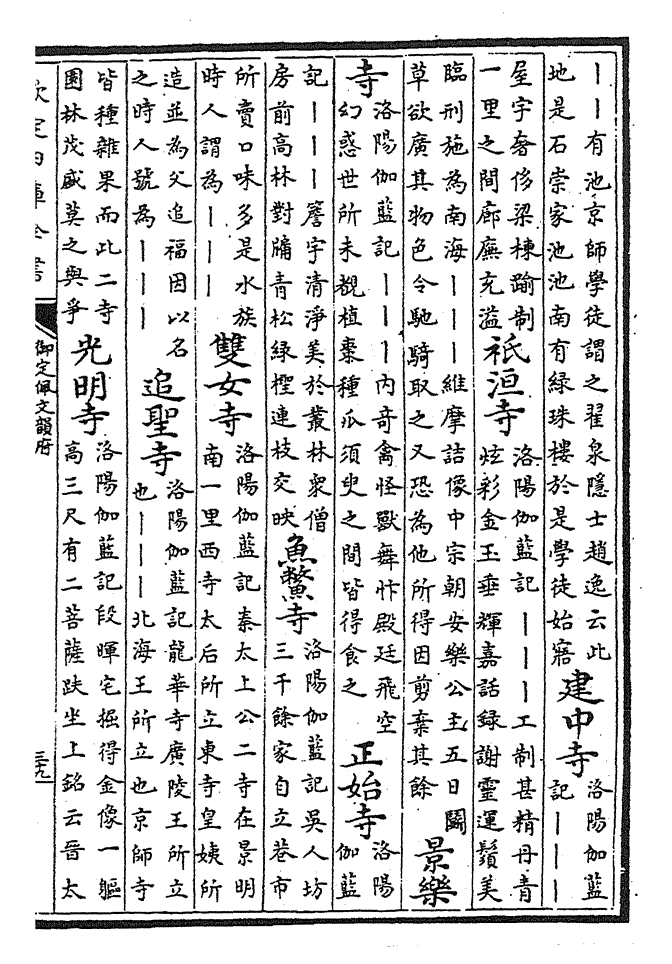 丨丨有池京師學徒謂之翟泉隱士趙逸云此
地是石崇家池池南有緑珠樓於是學徒始寤
建中寺
洛陽伽藍
記丨丨丨
屋宇奢侈梁棟踰制
一里之間廊廡充溢
祇洹寺
洛陽伽藍記丨丨丨工制甚精丹青
炫彩金玉垂輝嘉話録謝靈運鬚美
臨刑施為南海丨丨丨維摩詰像中宗朝安樂公主五日鬬
草欲廣其物色令馳騎取之又恐為他所得因剪棄其餘
景樂
寺
洛陽伽藍記丨丨丨内竒禽怪獸舞忭殿廷飛空
幻惑世所未覩植棗種瓜須臾之間皆得食之
正始寺
洛陽
伽藍
記丨丨丨簷宇清淨美於叢林衆僧
房前高林對牖青松緑檉連枝交映
魚鱉寺
洛陽伽藍記吳人坊
三千餘家自立巷市
所賣口味多是水族
時人謂為丨丨丨
雙女寺
洛陽伽藍記秦太上公二寺在景明
南一里西寺太后所立東寺皇姨所
造並為父追福因以名
之時人號為丨丨丨
追聖寺
洛陽伽藍記龍華寺廣陵王所立
也丨丨丨北海王所立也京師寺
皆種雜果而此二寺
園林茂盛莫之與爭
光明寺
洛陽伽藍記段暉宅掘得金像一軀
高三尺有二菩薩趺坐上銘云晉太
欽定四庫全書
御定佩文韻府
三九